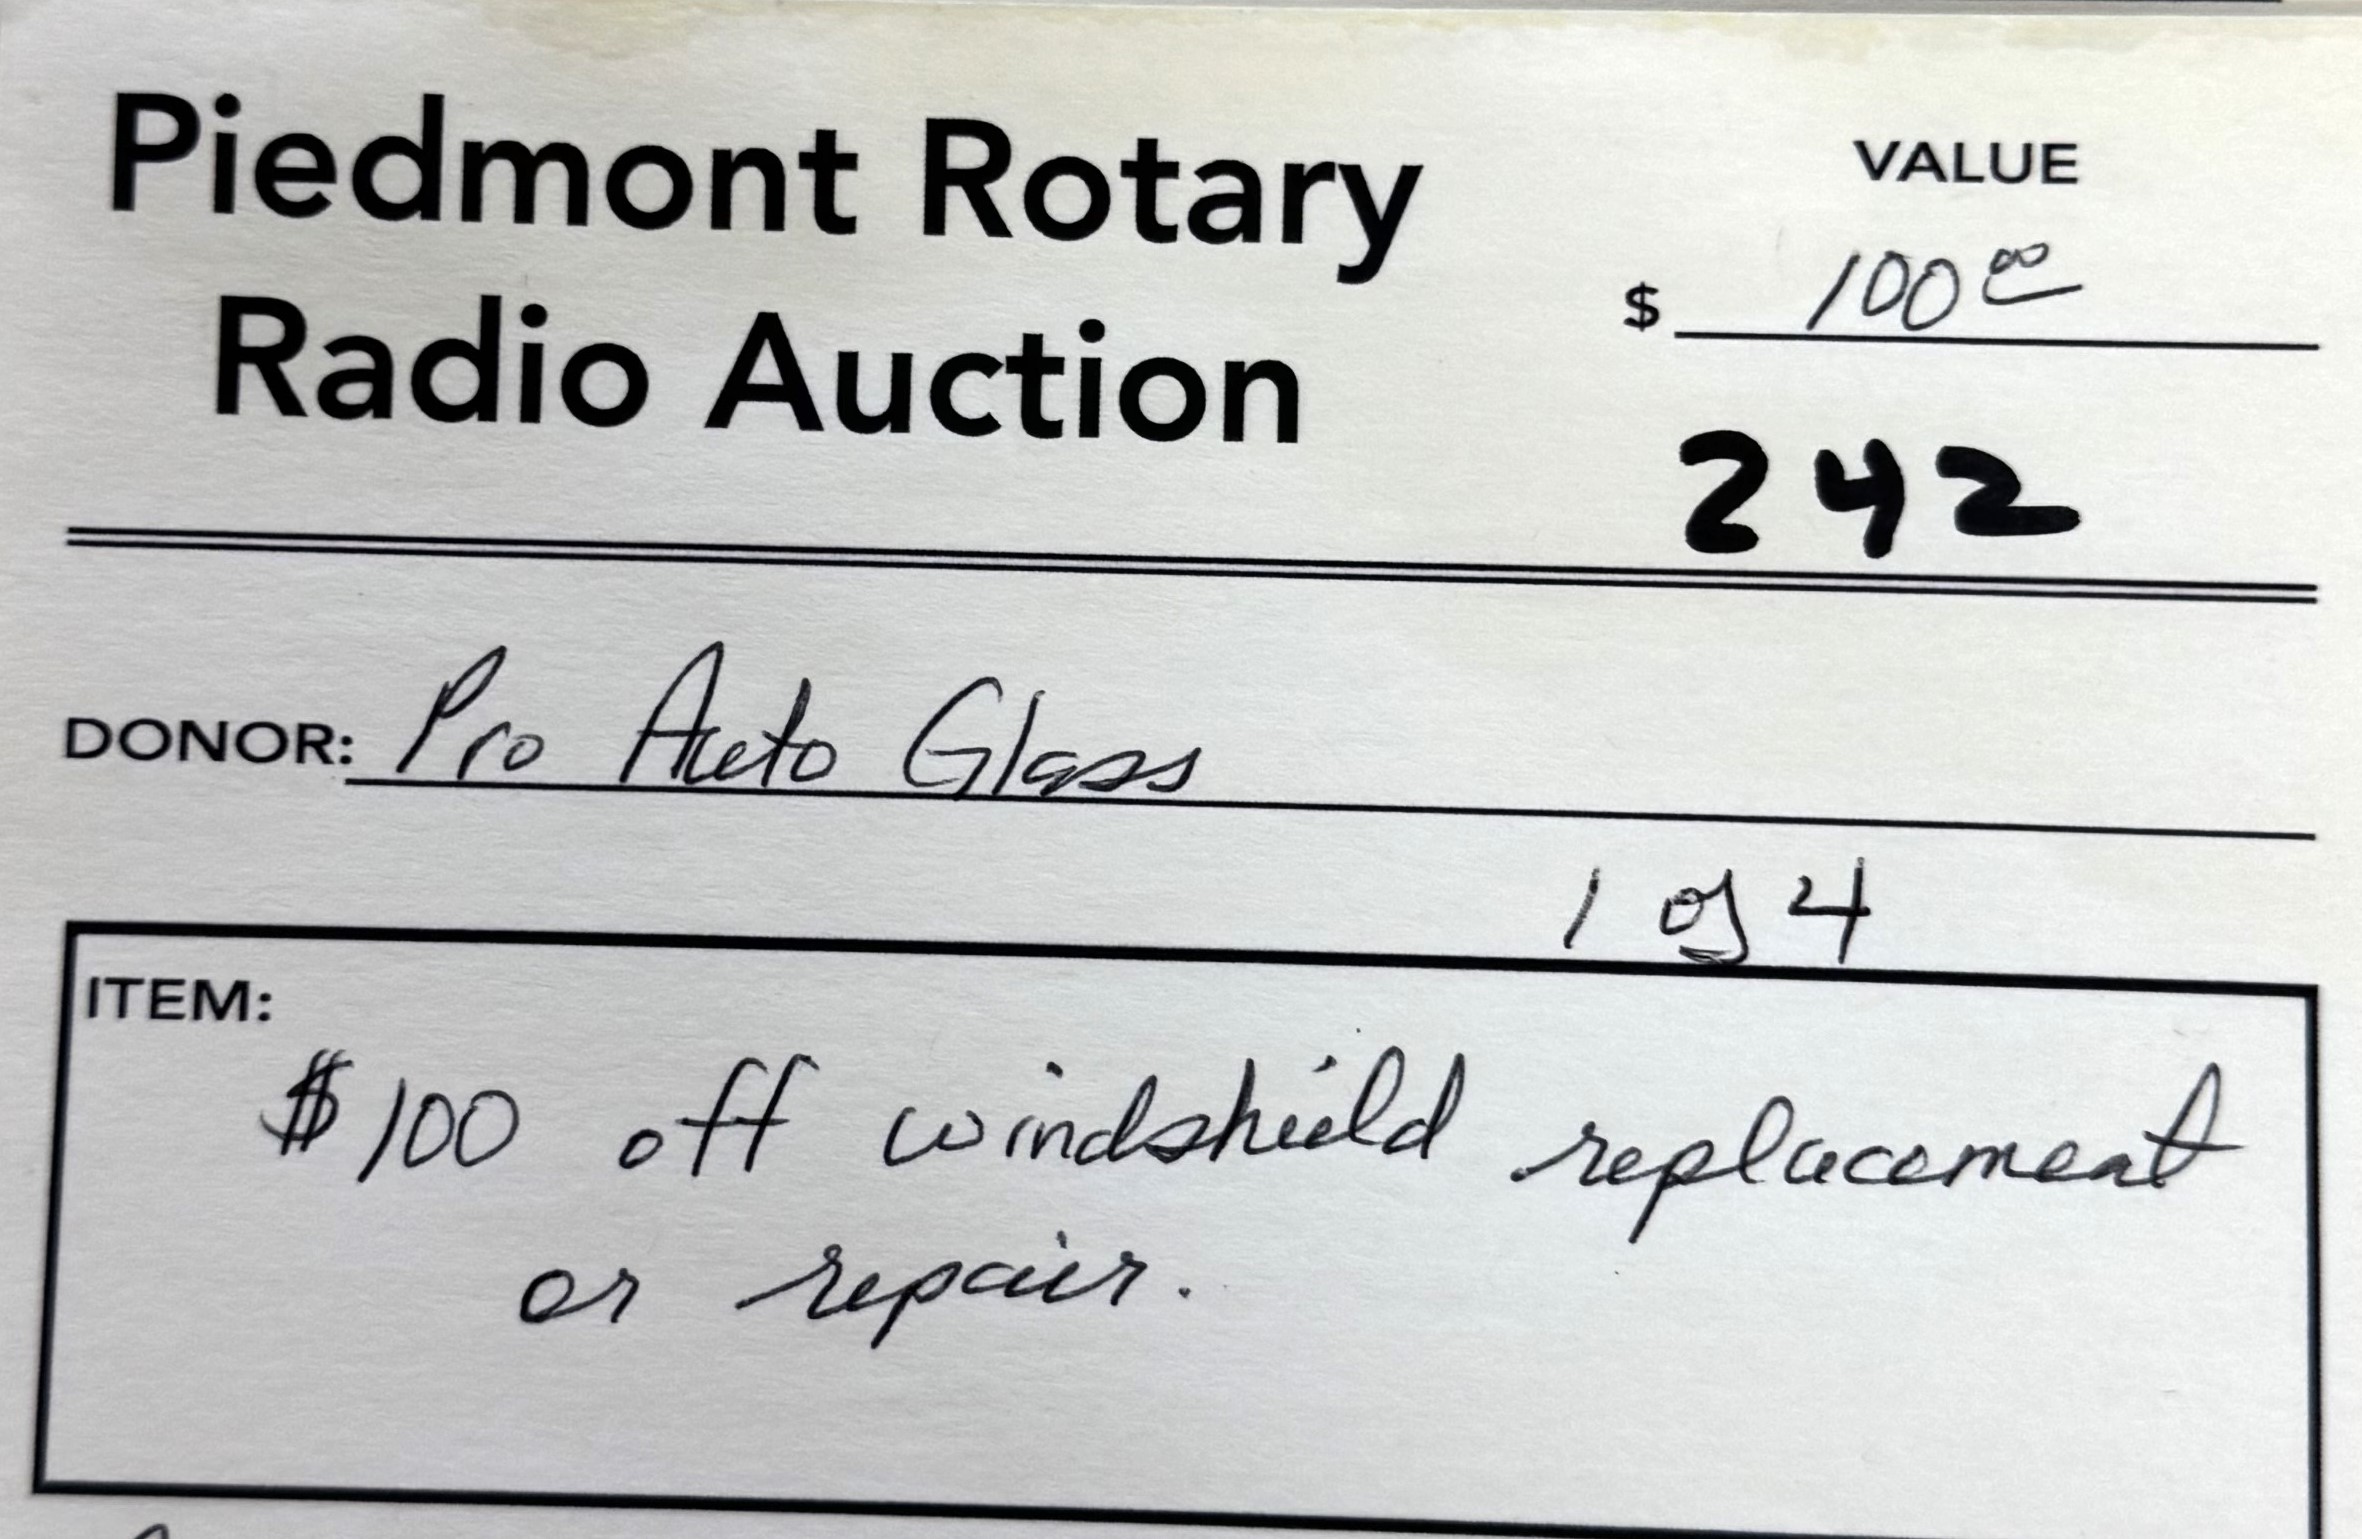 Piedmont Rotary
Radio Auction
VALUE
$ 100 00
242
DONOR: Pro Auto Glass
1 of 4
ITEM:
$100 off windshield replacement
or repair.